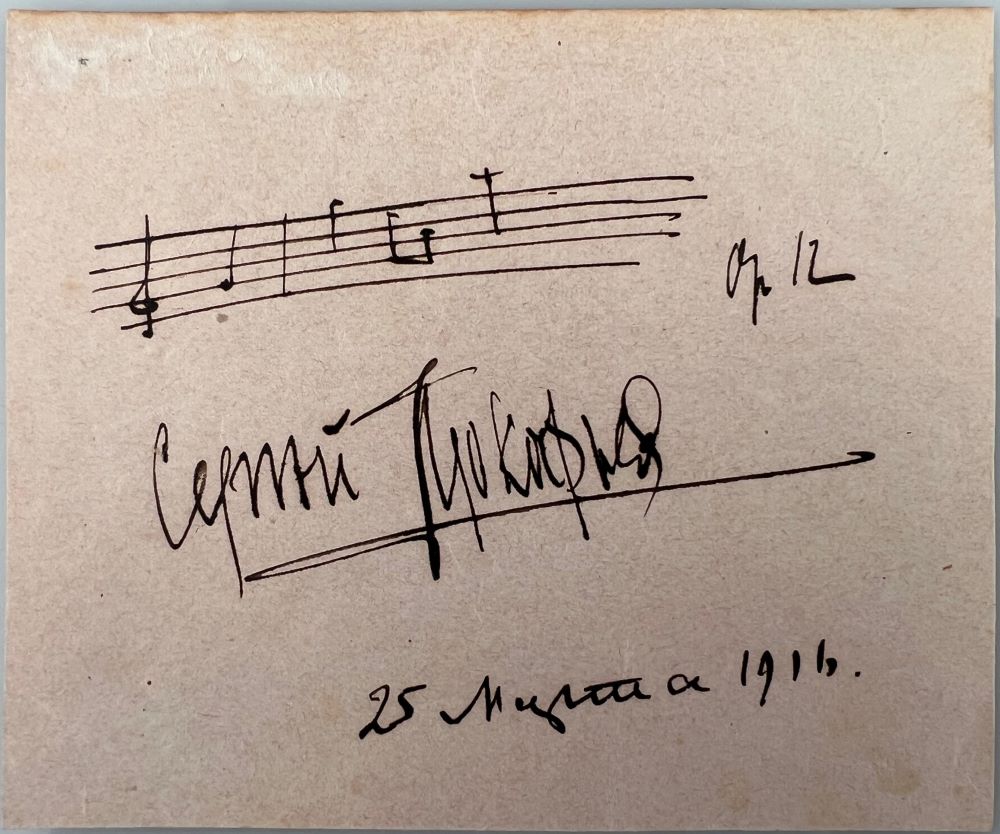 Op. 12
Сергей Прокофьев
25 Марта 1916.